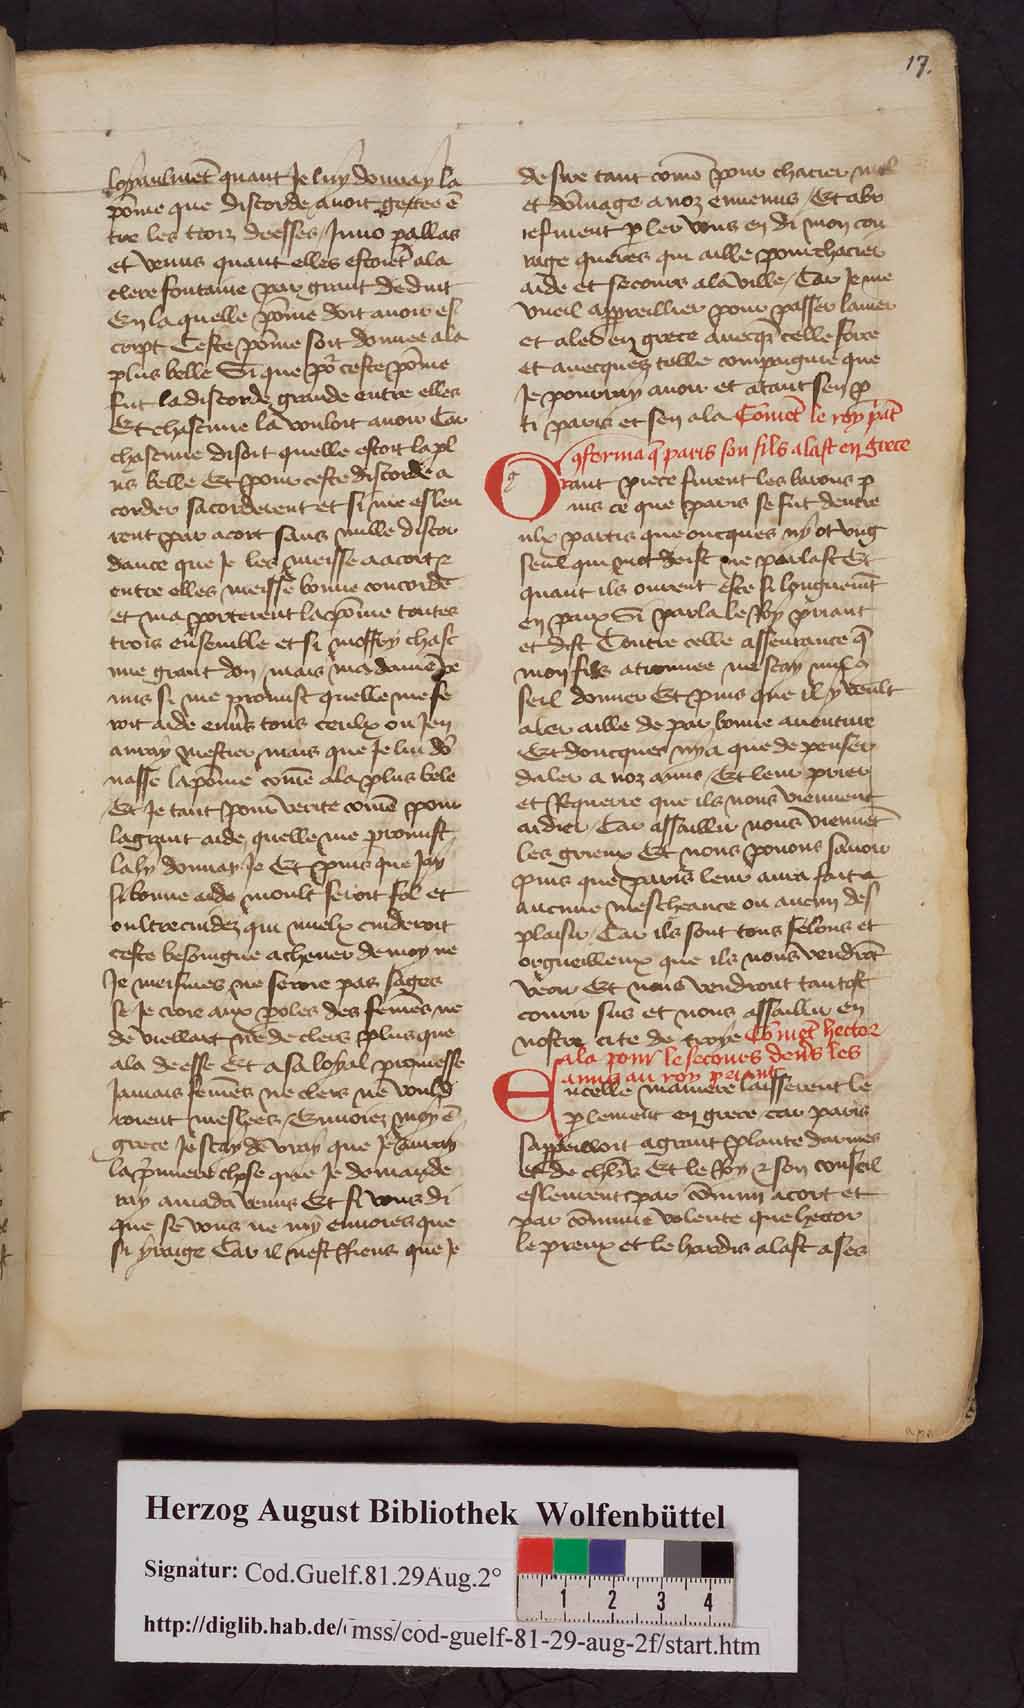 17.
loyaulmēt quant Je luy donnay la
pōme que discorde auoit gectee ē
tre les troiz deesses Juno pallas
et venus quant elles estoiēt ala
clere fontaine par grant deduit
En la quelle pōme doit auoir es
cript Ceste pōme soit donnee ala
plus belle Si que po ceste pōme
fut la discorde grande entre elles
Et chascune la vouloit auoir Car
chascune disoit quelle estoit la pl
us belle Et pour ceste discorde a
corder sacorderent et si me esleu
rent par acort sans nulle discor
dance que Je les meisse a acort
entre elles meisse bonne concorde
et ma porterent la pōme toutes
trois ensemble et si moffry chasc
une grant don mais ma dame ve
nus si me promist quelle me se
roit aide enuers tous ceulx ou Jen
auray mestier mais que Je lui dō
nasse la pōme cōme ala plus bele
Et Je tant pour verite cōme pour
la grant aide quelle me promist
la ly donnay Je Et puis que Jay
si bonne aide moult seroit fol et
oultrecuidez qui mielx cuideroit
ceste besoingne acheuer de moy ne
Je meismes ne seroie pas sages
se Je croie aux poles des femes ne
de viellart ne de clers plus que
ala deesse Et a sa loyal promesse
Jamais femes ne clers ne vould
roient meslees Enuoiez moy ē
grece Je scay de vray que Je auray
la pmiere chose que Je demande
ray a mada venus Et si vous di
que se vous ne my enuoies que
si yraige Car il nest riens que Je
desire tant comō pour chacier mal
et dōmage a noz ennemis Et abr
iefment p ler vous en di mon cou
rage queres qui aille pourchacier
aide et secours ala ville Car Je me
vueil appareillier pour passer la mer
et aler en grece auecqs celle force
et auecques telle compaignie que
Je pourray auoir et atant sen p
ti paris et sen ala Comēt le roy pāt
qferma q paris son fils alast en grece
Grant piece furent les barons p
uis ce que paris se fut dentre
ulx partis que oncques ny ot vng
seul qui mot deist ne parlast Et
quant ils ourent este si longuemt
en paix Si parla le Roy priant
et dist Contre celle asseurance q
mon fils a trouuee ne scay nul cō
seil donner Et puis que il y veult
aler aille de par bonne auenture
Et doncques ny a que de penser
daler a noz amis Et leur prier
et Requerre que ils nous viennent
aidier Car assaillir nous viennēt
les grieux Et nous pouons sauoir
puis que paris leur aura fait
aucune mescheance ou aucun des
plaisir Car ils sont tous felons et
orgueilleux que ils nous vendrōt
veoir Et nous vendront tantost
courir sus et nous assaillir en
nostre cite de troye Cōmēt hector
ala pour le secours deuers les
amis au roy priant
Encelle maniere laisserent le
plement en grece car paris
sappareilloit a grant plante darmes
et de chlrs Et le Roy et son conseil
eslement par cōmun acort et
par cōmune volente que hector
le preux et le hardis alast a ses
Herzog August Bibliothek Wolfenbüttel
Signatur: Cod.Guelf.81.29Aug.2°
http://diglib.hab.de/mss/cod-guelf-81-29-aug-2f/start.htm
1 2 3 4